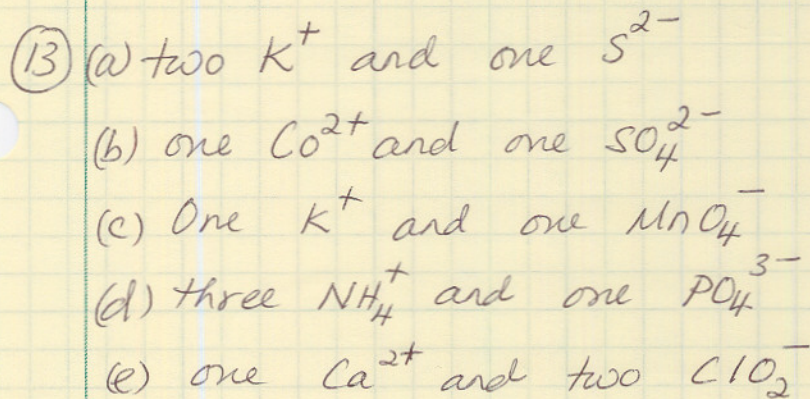 13 (a) two K⁺ and one S²⁻
(b) one Co²⁺ and one SO₄²⁻
(c) One K⁺ and one MnO₄⁻
(d) three NH₄⁺ and one PO₄³⁻
(e) one Ca²⁺ and two ClO₂⁻